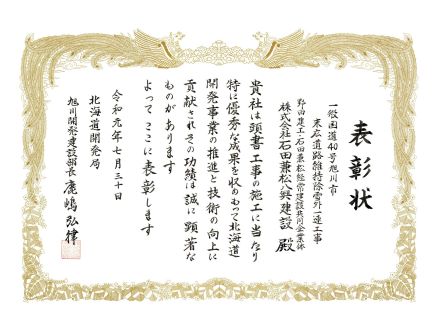 表彰状
一般国道40号旭川市
末広道路維持除雪外一連工事
野田建工・石田兼松経常建設共同企業体
株式会社石田兼松八興建設 殿
貴社は頭書工事の施工に当たり
特に優秀な成果を収めもって北海道
開発事業の推進と技術の向上に
貢献されその功績は誠に顕著な
ものがあります
よってここに表彰します
令和元年七月三十日
北海道開発局
旭川開発建設部長 鹿嶋弘律